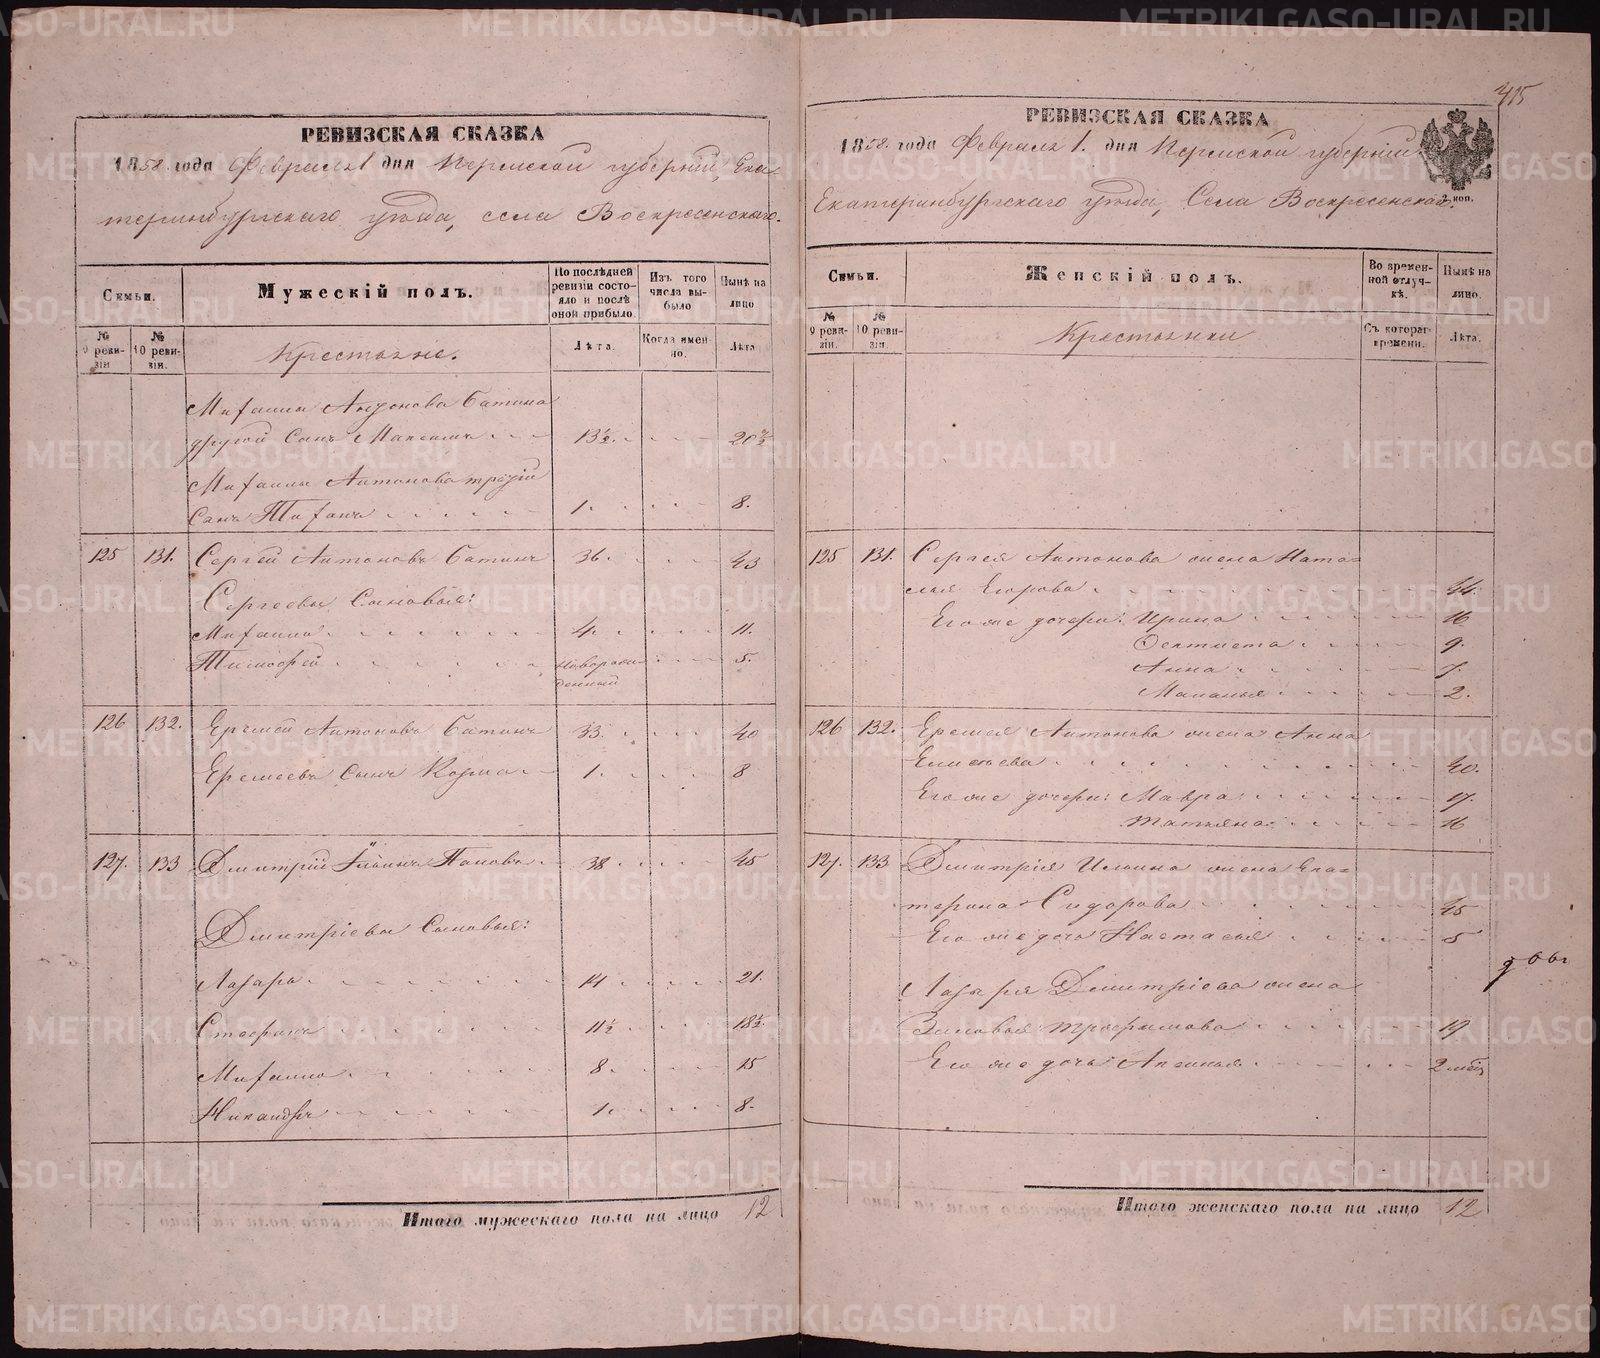 415
РЕВИЗСКАЯ СКАЗКА
1858. года Февраля 1 дня Пермской губернiи, Ека-
теринбургскаго уѣзда, села Воскресенскаго.
Семьи.
Мужескiй полъ.
По послѣдней ревизiи состояло и послѣ оной прибыло.
Изъ того числа выбыло
Нынѣ на лицо
№ 9 ревизiи.
№ 10 ревизiи.
Крестьяне.
Лѣта.
Когда именно.
Лѣта
Михаила Антонова Батина
другой Сынъ Максимъ 13½. 20½
Михаила Антонова третiй
Сынъ 1. 8.
125 131. Сергей Антоновъ Батинъ 36. 43
Сергеевы Сыновья:
Михаило 4. 11.
Тимофей новорожденный 5.
126 132. Еремей Антоновъ Батинъ 33. 40
Еремеевъ сынъ Козма 1. 8
127. 133 Дмитрiй Ильинъ Поповъ 38 45
Дмитрiевы Сыновья:
Лазарь 14 21.
Стефанъ 11½ 18½
Михаило 8. 15
Никандръ 1. 8.
Итого мужескаго пола на лицо 12
РЕВИЗСКАЯ СКАЗКА
1858. года Февраля 1. дня Пермской губернiи
Екатеринбургскаго уѣзда, Села Воскресенскаго.
2 коп.
Семьи.
Женскiй полъ.
Во временной отлучкѣ.
Нынѣ на лицо.
№ 9 ревизiи.
№ 10 ревизiи.
Крестьянки
Съ котораго времени.
Лѣта.
125 131. Сергея Антонова жена Ната-
лья Егорова 44.
Его же дочери: Ирина 16
Фектиста 9.
Анна 7.
Маланья 2.
126 132. Еремея Антонова жена Анна
40.
Его же дочери: Мавра 17.
Татьяна 16
127. 133 Дмитрiя Ильина жена Ека-
терина Сидорова 45
Его же дочь Настасья 5
Лазаря Дмитрiева жена
Зиновья Трофимова 19
Его же дочь 2
Итого женскаго пола на лицо 12
METRIKI.GASO-URAL.RU